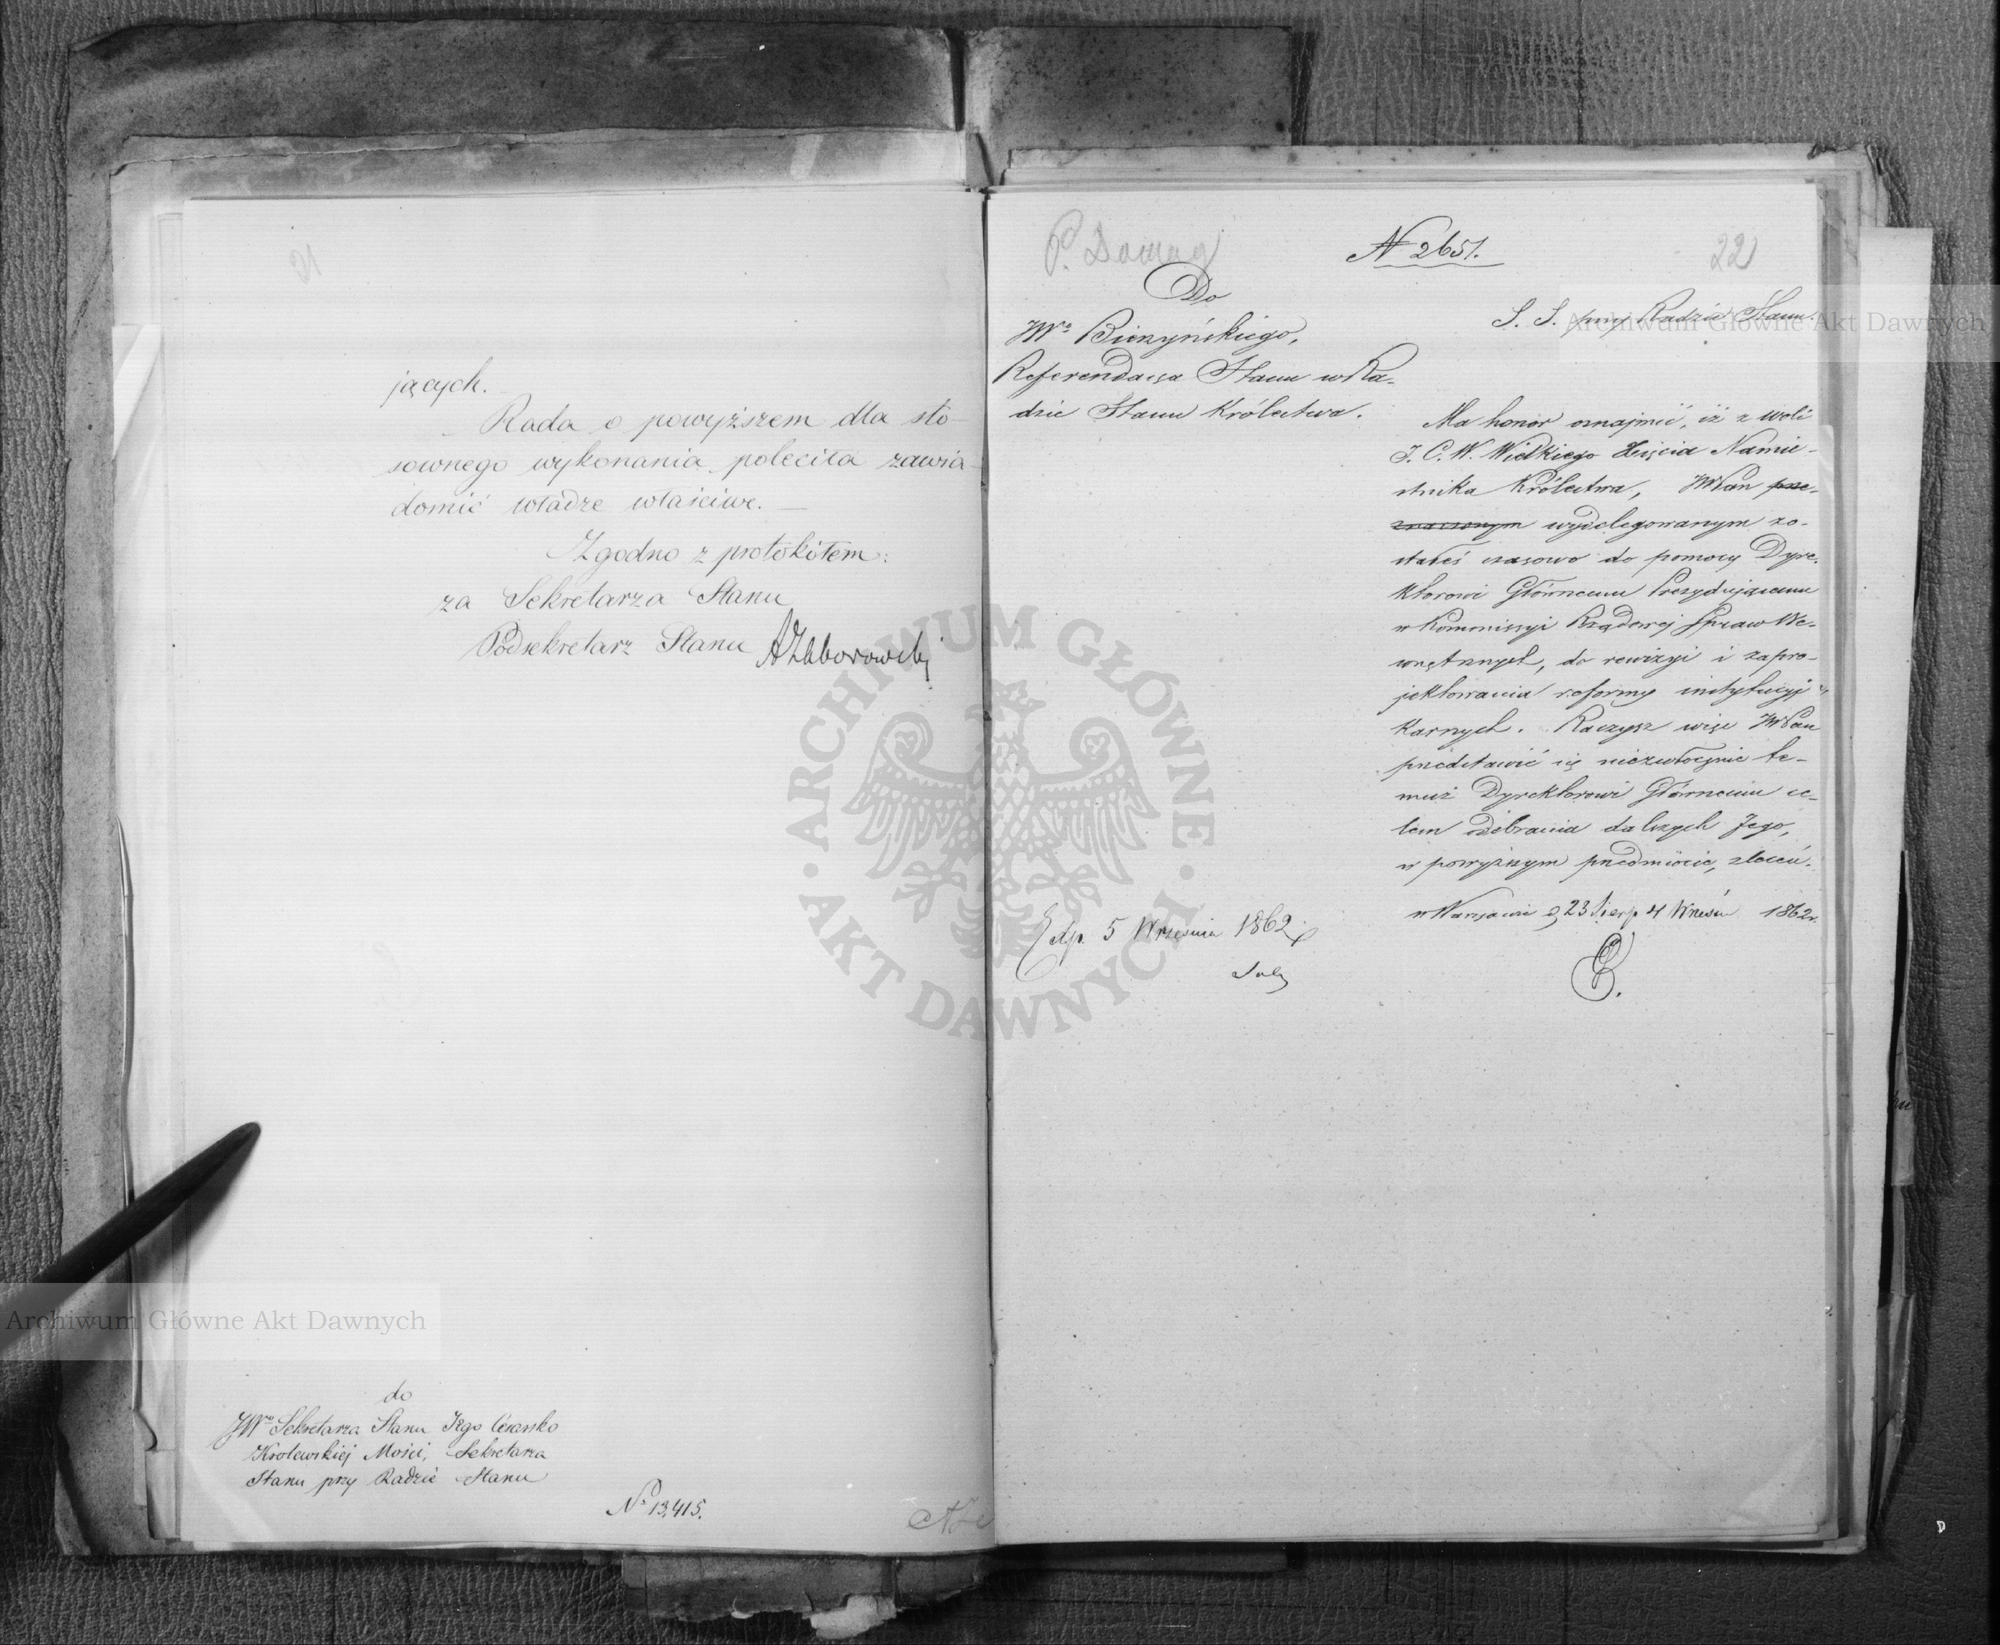 jących.
Rada o powyższem dla sto-
sownego wykonania poleciła zawia-
domić władze właściwe. —
Zgodno z protokółem:
za Sekretarza Stanu
Podsekretarz Stanu AZaborowski
do
JWo Sekretarza Stanu Jego Cesarsko
Królewskiej Mości, Sekretarza
Stanu przy Radzie Stanu
No 13,415.
P.
N 2651.
22
Do
JWo
Referendarza Stanu w Ra-
dzie Stanu Królestwa.
S. S. przy Radzie Stanu.
Ma honor oznajmić, iż z woli
J. C. W. Wielkiego Xięcia Namie-
stnika Królestwa, JWPan prze-
znaczonym wydelegowanym zo-
stałeś czasowo do pomocy Dyre-
ktorowi Głównemu Prezydującemu
w Kommissyi Rządowej Spraw We-
wnętrznych, do rewizyi i zapro-
jektowania reformy instytucyj
karnych. Raczysz więc JWPan
przedstawić się niezwłocznie te-
muż Dyrektorowi Głównemu ce-
lem odebrania dalszych Jego,
w powyższym przedmiocie, zleceń.
w Warszawie d 23 Sierp 4 Wrześn 1862 r.
Exp. 5 Września 1862
Archiwum Główne Akt Dawnych
Archiwum Główne Akt Dawnych
ARCHIWUM GŁÓWNE
AKT DAWNYCH